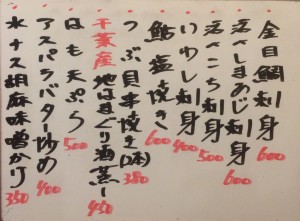 金目鯛刺身 600
活〆しまあじ刺身 600
活〆こち刺身 500
いわし刺身 400
鮎塩焼き 600
つぶ貝串焼き(2本) 380
千葉産 地はまぐり酒蒸し 450
はも天ぷら 500
アスパラバター炒め 400
水ナス胡麻味噌かけ 350